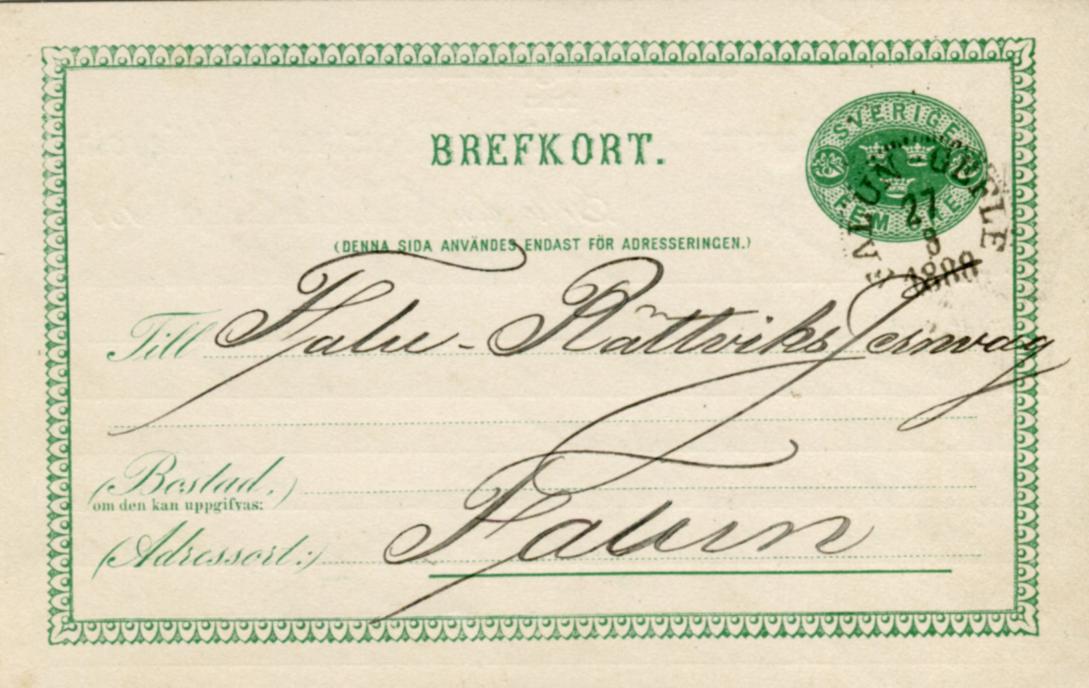 BREFKORT.
SVERIGE
FEM ÖRE
FALUN - GEFLE
27
8
(DENNA SIDA ANVÄNDES ENDAST FÖR ADRESSERINGEN.)
Till Falu - Rättviks Jernväg
(Bostad,)
om den kan uppgifvas:
(Adressort:) Falun